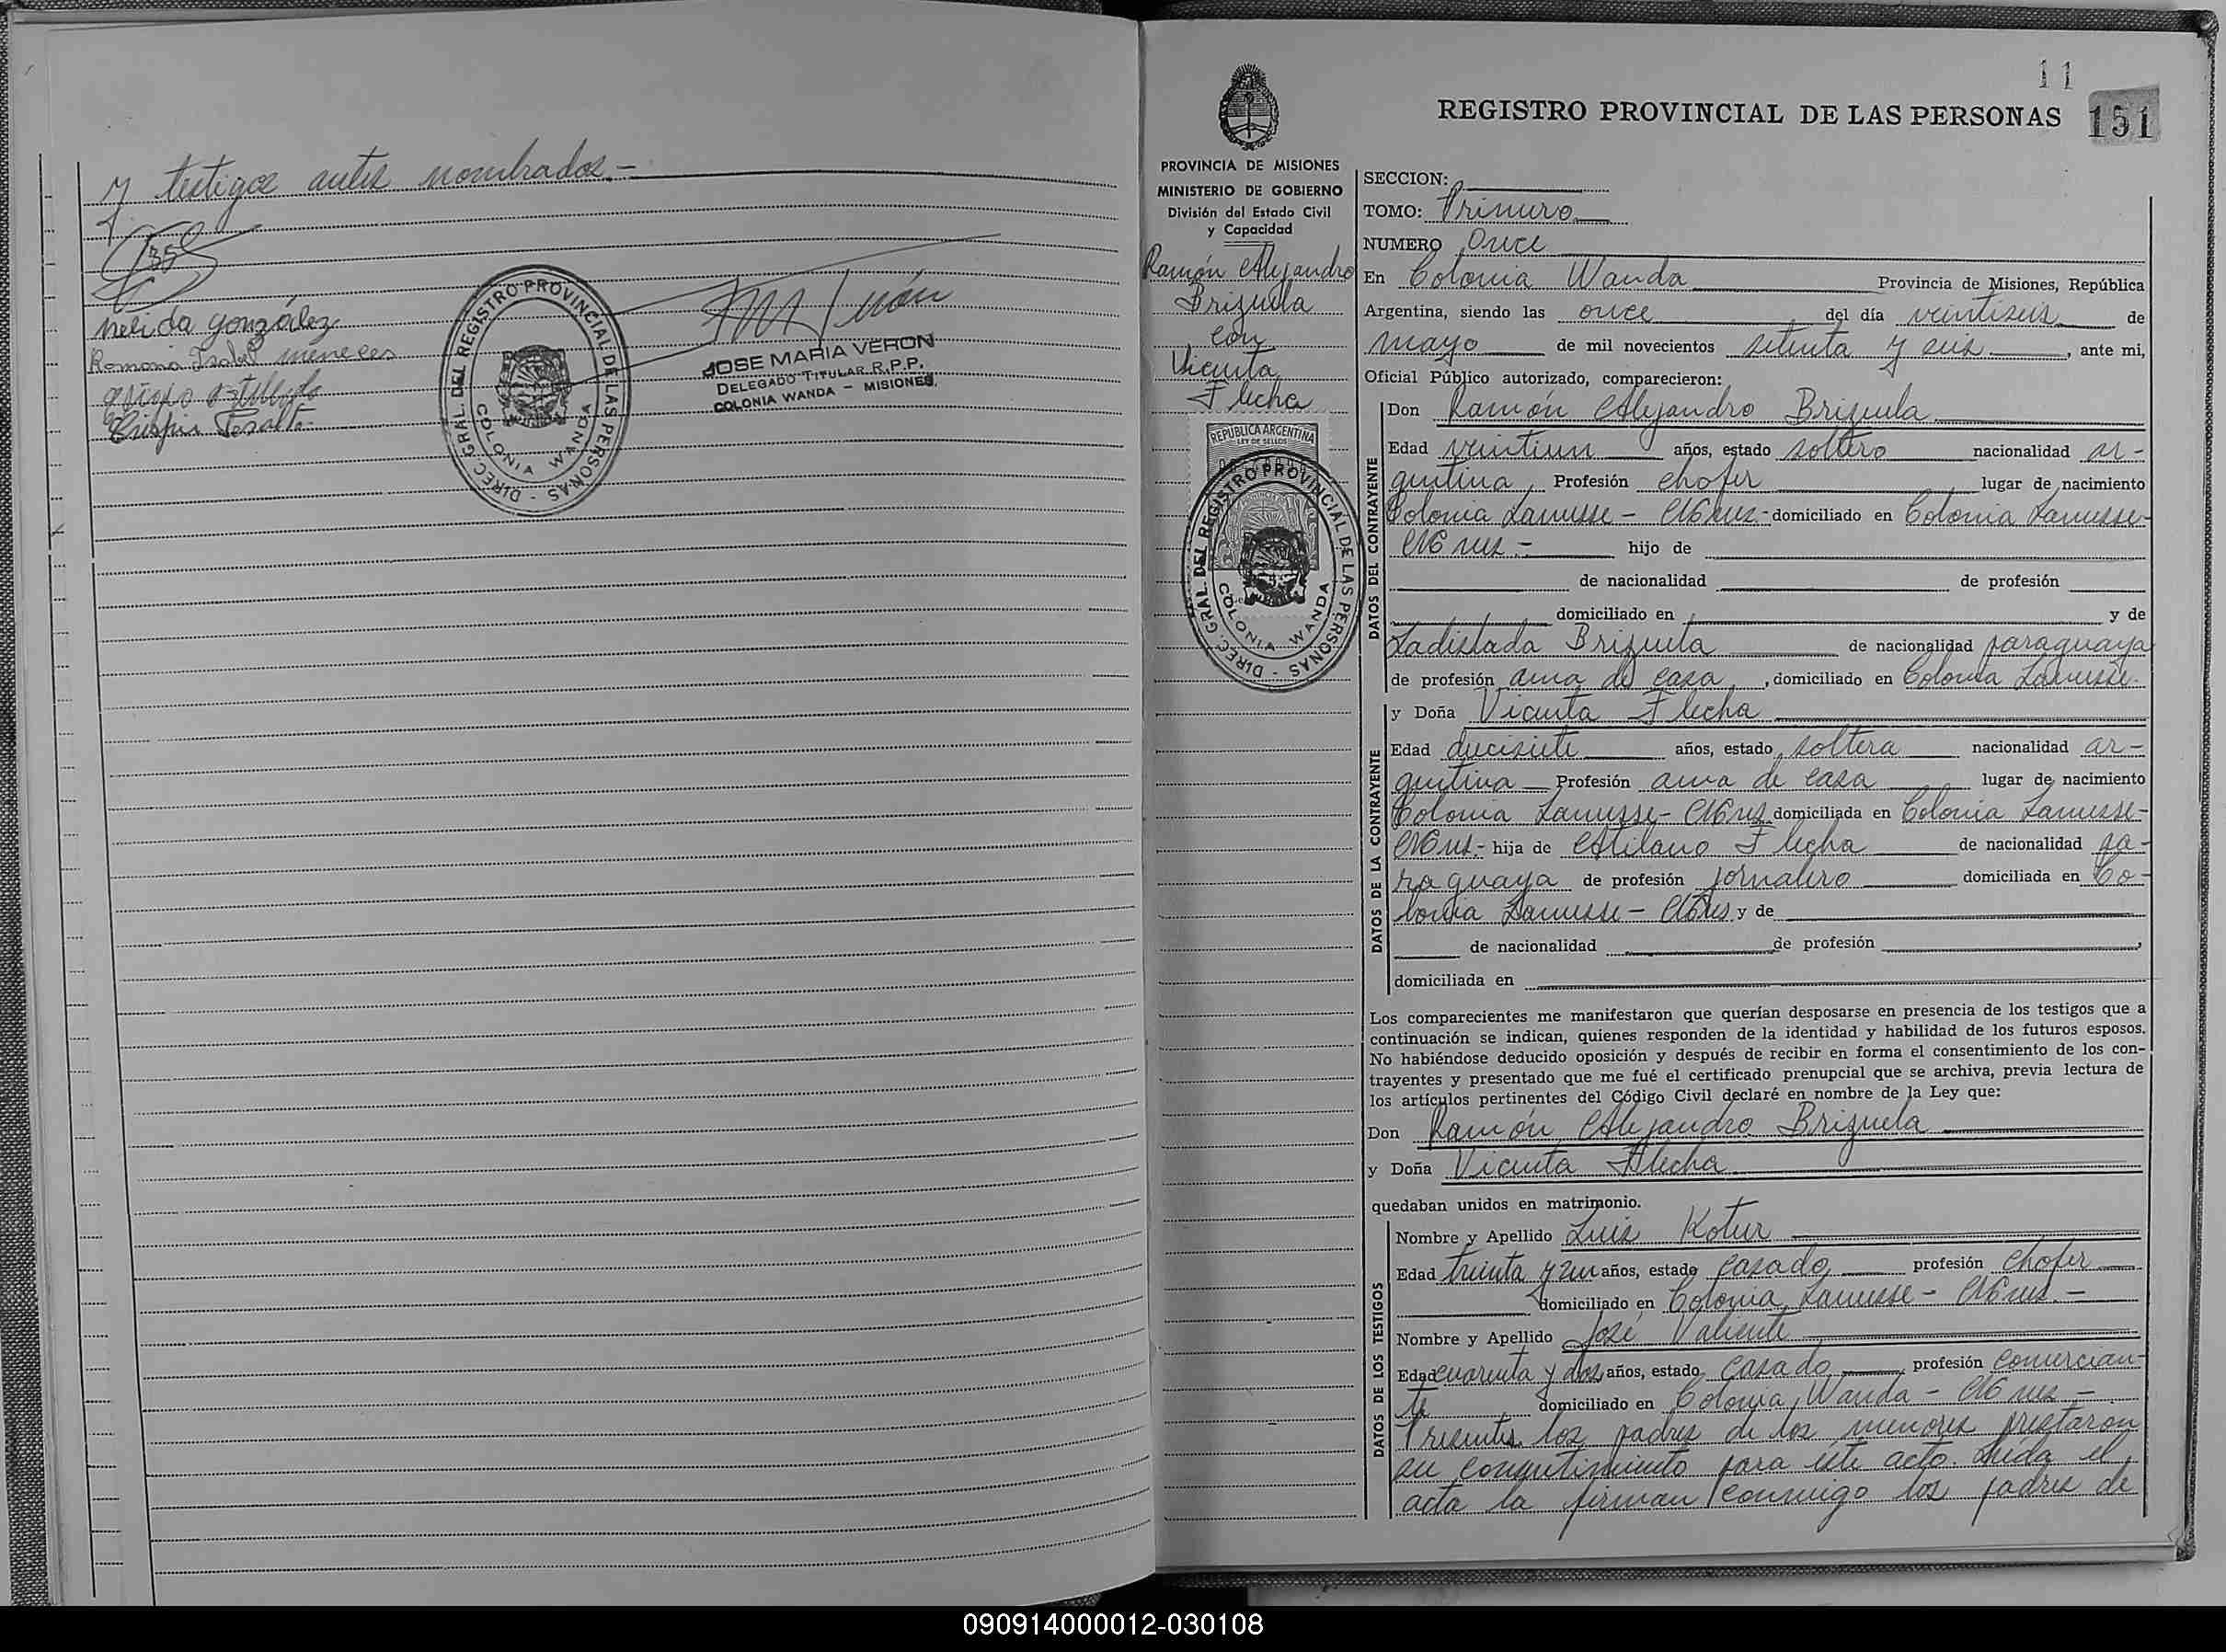 y testigos antes nombrados.-
Nelida González
Ramona Isabel meneces
Crispin Peralta
DIREC. GRAL. DEL REGISTRO PROVINCIAL DE LAS PERSONAS
COLONIA WANDA
JOSE MARIA VERON
DELEGADO TITULAR R.P.P.
COLONIA WANDA - MISIONES
11
REGISTRO PROVINCIAL DE LAS PERSONAS 151
PROVINCIA DE MISIONES
MINISTERIO DE GOBIERNO
División del Estado Civil
y Capacidad
Ramón Alejandro
Brizuela
con
Vicenta
Flecha
REPUBLICA ARGENTINA
LEY DE SELLOS
DIREC. GRAL. DEL REGISTRO PROVINCIAL DE LAS PERSONAS
COLONIA WANDA
SECCION:
TOMO: Primero
NUMERO Once
En Colonia Wanda Provincia de Misiones, República
Argentina, siendo las once del día veintiseis de
mayo de mil novecientos setenta y seis, ante mi,
Oficial Público autorizado, comparecieron:
DATOS DEL CONTRAYENTE
Don Ramón Alejandro Brizuela
Edad veintiun años, estado soltero nacionalidad ar-
gentina Profesión chofer lugar de nacimiento
Colonia Lanusse - Mnes.- domiciliado en Colonia Lanusse-
Mnes.- hijo de
de nacionalidad de profesión
domiciliado en y de
Ladislada Brizuela de nacionalidad paraguaya
de profesión ama de casa, domiciliado en Colonia Lanusse.
DATOS DE LA CONTRAYENTE
y Doña Vicenta Flecha
Edad diecisiete años, estado soltera nacionalidad ar-
gentina Profesión ama de casa lugar de nacimiento
Colonia Lanusse- Mnes domiciliada en Colonia Lanusse-
Mnes.- hija de Atilano Flecha de nacionalidad pa-
raguaya de profesión jornalero domiciliada en Co-
lonia Lanusse - Mnes y de
de nacionalidad de profesión ,
domiciliada en
Los comparecientes me manifestaron que querían desposarse en presencia de los testigos que a
continuación se indican, quienes responden de la identidad y habilidad de los futuros esposos.
No habiéndose deducido oposición y después de recibir en forma el consentimiento de los con-
trayentes y presentado que me fué el certificado prenupcial que se archiva, previa lectura de
los artículos pertinentes del Código Civil declaré en nombre de la Ley que:
Don Ramón Alejandro Brizuela
y Doña Vicenta Flecha
quedaban unidos en matrimonio.
DATOS DE LOS TESTIGOS
Nombre y Apellido Luis Kotur
Edad treinta y un años, estado casado profesión chofer
domiciliado en Colonia Lanusse - Mnes.-
Nombre y Apellido José Valiente
Edad cuarenta y dos años, estado casado profesión comercian-
te domiciliado en Colonia Wanda - Mnes -
Presentes los padres de los menores prestaron
su consentimiento para este acto. Leida el
acta la firman conmigo los padres de
090914000012-030108